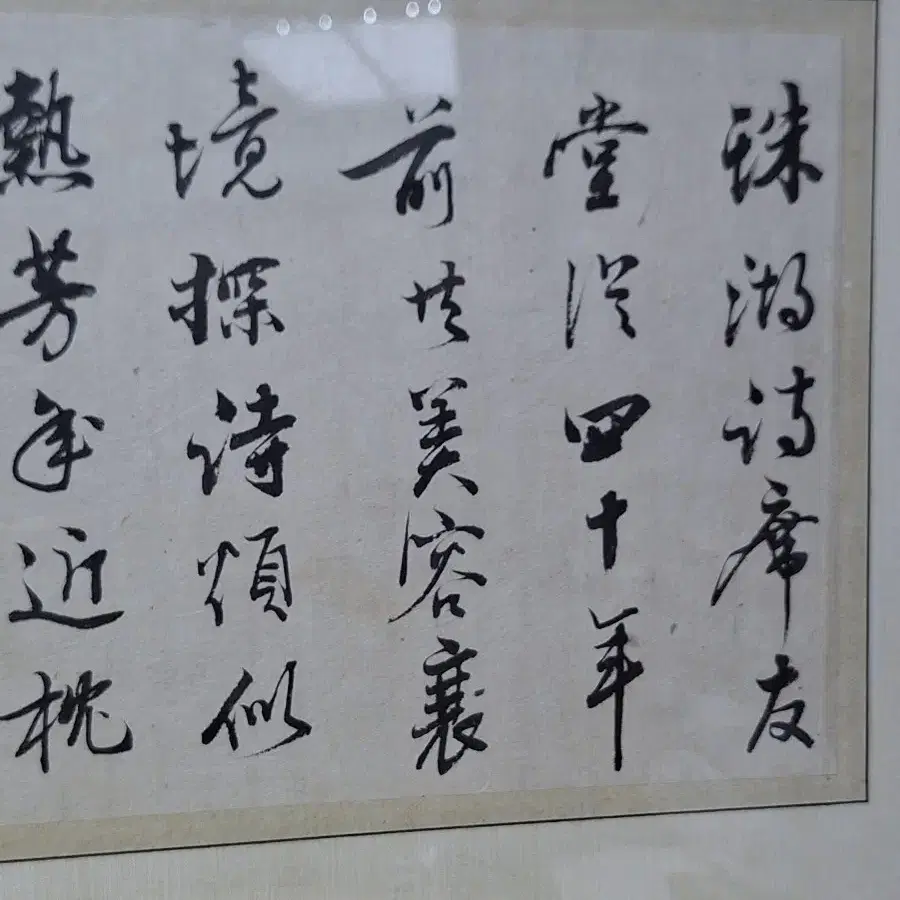 珠湖詩席友
堂從四十年
前共美容襄
境探詩煩似
熱芳年近枕